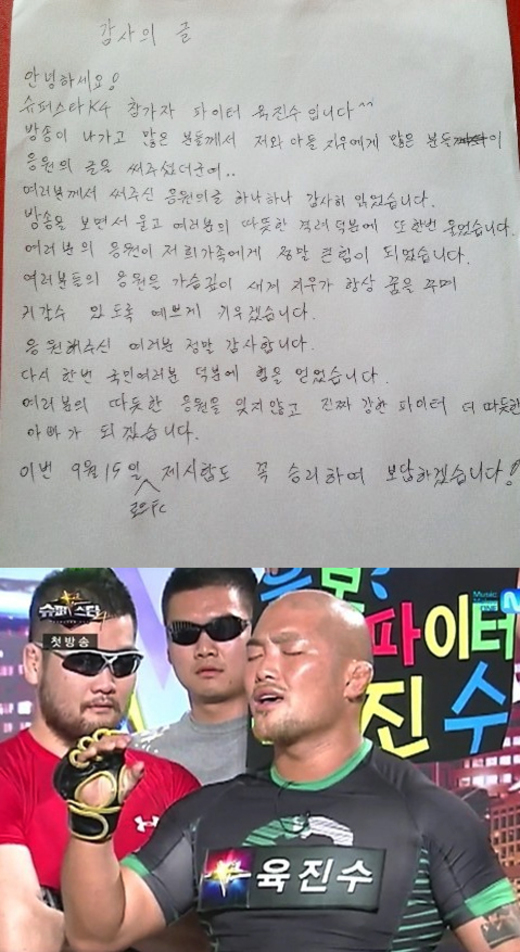 감사의 글
안녕하세요!
슈퍼스타K4 참가자 파이터 육진수입니다^^
방송이 나가고 많은 분들께서 저와 아들 지우에게 많은 분들이
응원의 글을 써주셨더군여..
여러분께서 써주신 응원의글 하나하나 감사히 읽었습니다.
방송을 보면서 울고 여러분의 따뜻한 격려 덕분에 또한번 울었습니다.
여러분의 응원이 저희가족에게 정말 큰힘이 되었습니다.
여러분들의 응원을 가슴깊이 새겨 지우가 항상 꿈을 꾸며
커갈수 있도록 예쁘게 키우겠습니다.
응원해주신 여러분 정말 감사합니다.
다시 한번 국민여러분 덕분에 힘을 얻었습니다.
여러분의 따듯한 응원을 잊지않고 진짜 강한 파이터 더 따듯한
아빠가 되겠습니다.
이번 9월 15일 제시합도 꼭 승리하여 보답하겠습니다!
로드FC
슈퍼스타
첫방송
Music
파이터
진수
육진수